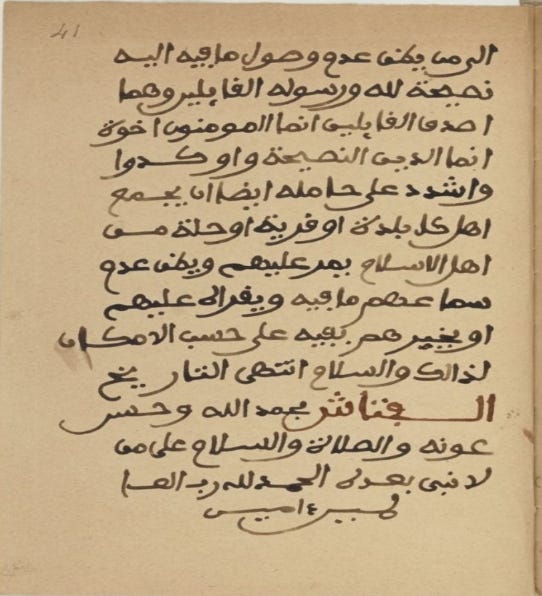 41
الى من يظن عدم وصول ما فيه اليه
نصيحة لله ورسوله الفايلين وهما
اصدق الفايلين انما المومنون اخوة
انما الدين النصيحة واوكدوا
واشدد على حامله ايضا ان يجمع
اهل كل بلدة او قرية او حلة مــن
اهل الاسلام يمر عليهم ويظن عدم
سماعهم ما فيه ويقرا لى عليهم
او يخبرهم بفيه على حسب الامكان
لذالك والسلام انتهى التاريخ
الــفتاش بحمد الله وحسن
عونه والصلاة والسلام على من
لا نبي بعدى الحمد لله رب العــا
لميــن ء اميــن